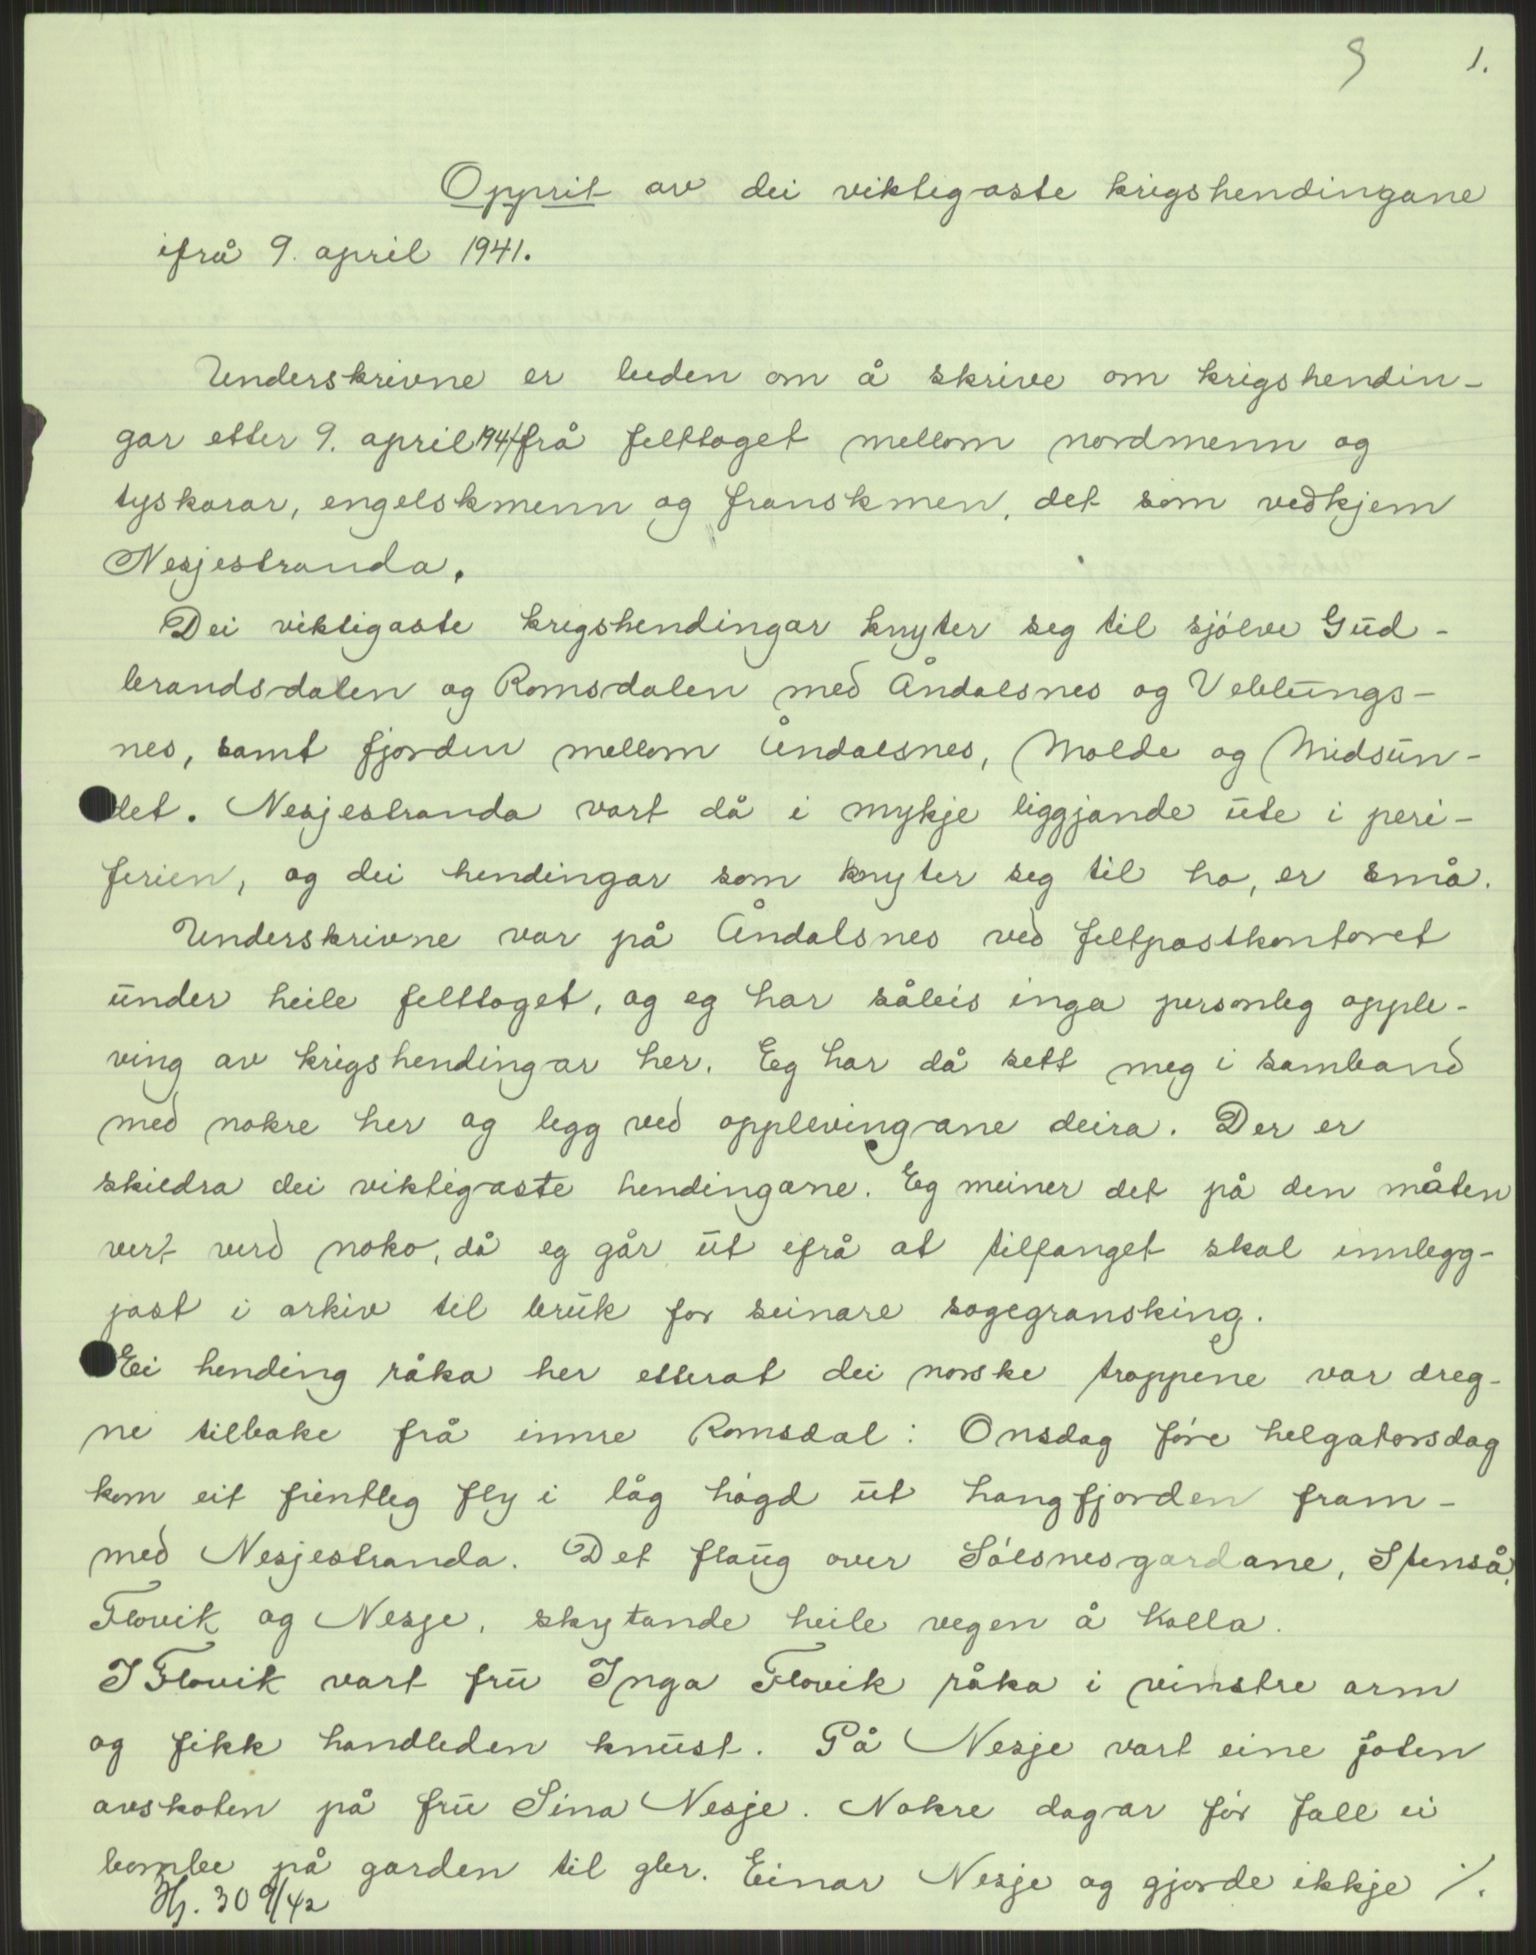 1.
Opprit av dei viktigaste krigshendingane
ifrå 9. april 1941.
Underskrivne er beden om å skrive om krigshendin-
gar etter 9. april 1941 frå felttoget mellom nordmenn og
tyskarar, engelskmenn og franskmen, det som vedkjem
Nesjestranda.
Dei viktigaste krigshendingar knyter seg til sjølve Gud-
brandsdalen og Romsdalen med Åndalsnes og Veblungs-
nes, samt fjorden mellom Åndalsnes, Molde og Midsun-
det. Nesjestranda vart då i mykje liggjande ute i peri-
ferien, og dei hendingar som knyter seg til ho, er små.
Underskrivne var på Åndalsnes ved feltpostkontoret
under heile felttoget, og eg har såleis inga personleg opple-
ving av krigshendingar her. Eg har då sett meg i samband
med nokre her og legg ved opplevingane deira. Der er
skildra dei viktigaste hendingane. Eg meiner det på den måten
vert verd noko, då eg går ut ifrå at tilfanget skal innlegg-
jast i arkiv til bruk for seinare sogegransking.
Ei hending råka her etterat dei norske troppene var dreg-
ne tilbake frå innre Romsdal: Onsdag føre helgatorsdag
kom eit fientleg fly i låg høgd ut Langfjorden fram-
med Nesjestranda. Det flaug over Sølsnesgardane, Stenså,
Flovik og Nesje, skytande heile vegen å kalla.
I Flovik vart fru Inga Flovik råka i vinstre arm
og fikk handleden knust. På Nesje vart eine foten
avskoten på fru Sina Nesje. Nokre dagar før fall ei
bombe på garden til gbr. Einar Nesje og gjorde ikkje ./.
Hj. 30 9/42